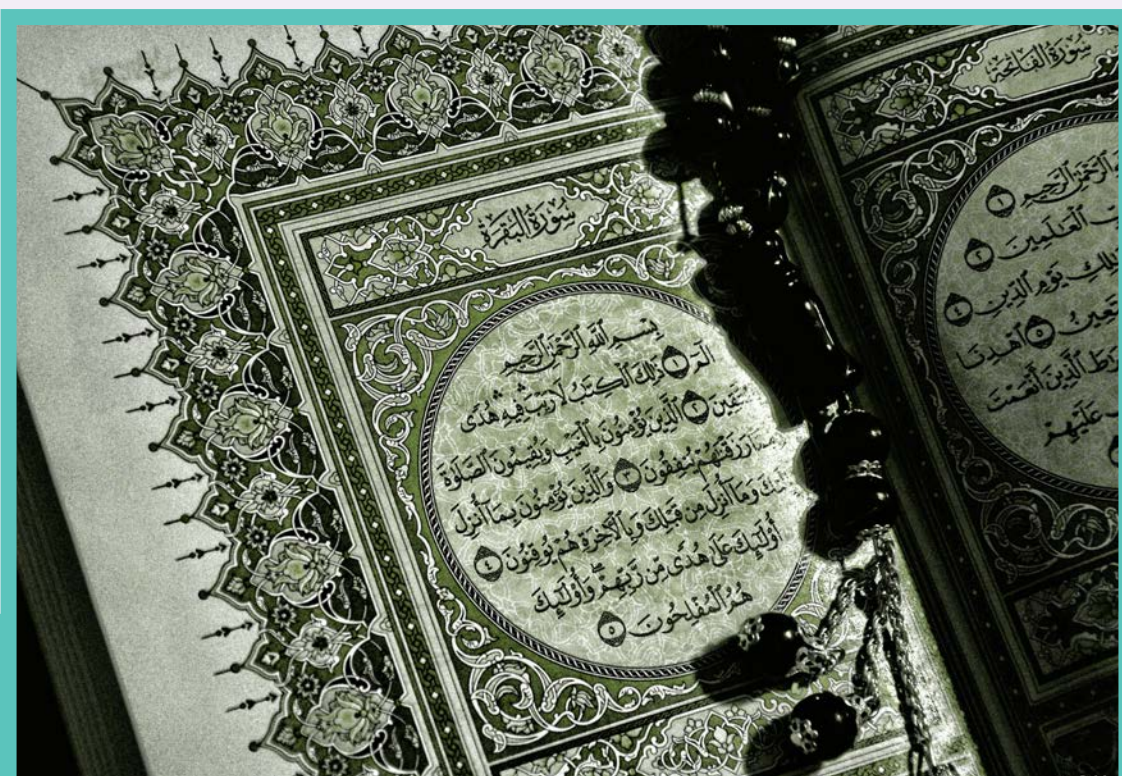 سُورَةُ الفَاتِحَةِ
ٱلرَّحْمَٰنِ ٱلرَّحِيمِ ١
ٱلْعَٰلَمِينَ ٢
مَٰلِكِ يَوْمِ ٱلدِّينِ ٤
٥ ٱهْدِنَا
ٱلَّذِينَ أَنْعَمْتَ
عَلَيْهِمْ
سُورَةُ البَقَرَةِ
بِسْمِ ٱللَّهِ ٱلرَّحْمَٰنِ ٱلرَّحِيمِ
الٓمٓ ١ ذَٰلِكَ ٱلْكِتَٰبُ لَا رَيْبَ ۛ فِيهِ ۛ هُدًى
٢ ٱلَّذِينَ يُؤْمِنُونَ بِٱلْغَيْبِ وَيُقِيمُونَ ٱلصَّلَوٰةَ
رَزَقْنَٰهُمْ يُنفِقُونَ ٣ وَٱلَّذِينَ يُؤْمِنُونَ بِمَآ أُنزِلَ
وَمَآ أُنزِلَ مِن قَبْلِكَ وَبِٱلْأٓخِرَةِ هُمْ يُوقِنُونَ ٤
أُو۟لَٰٓئِكَ عَلَىٰ هُدًى مِّن رَّبِّهِمْ ۖ وَأُو۟لَٰٓئِكَ
هُمُ ٱلْمُفْلِحُونَ ٥